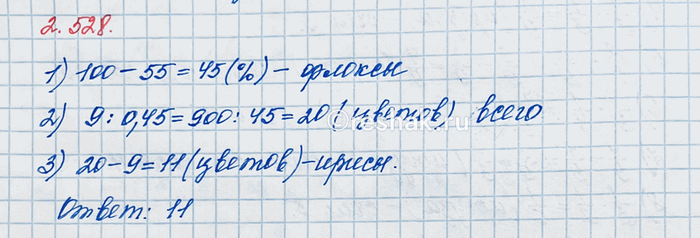 2.528.
1) 100 - 55 = 45 (%) - флоксы
2) 9 : 0,45 = 900 : 45 = 20 (цветов) всего
3) 20 - 9 = 11 (цветов) - ирисы.
Ответ: 11